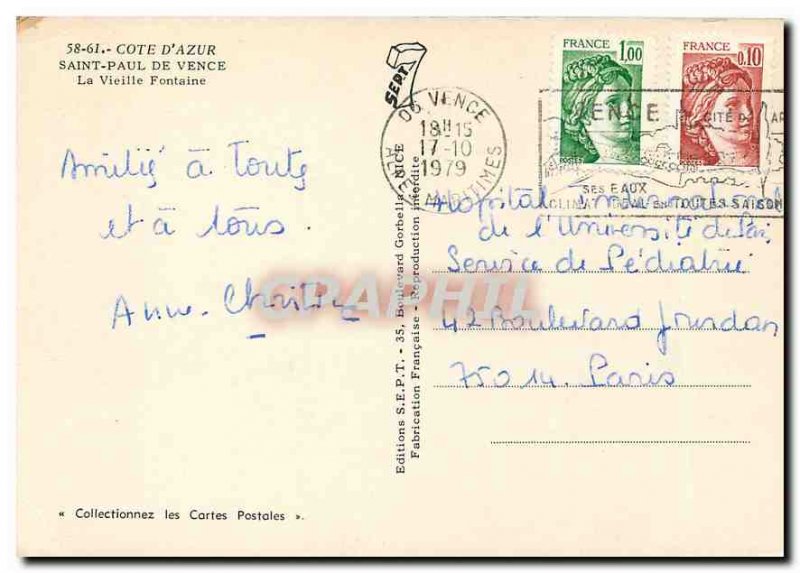 58-61.- COTE D'AZUR
SAINT-PAUL DE VENCE
La Vieille Fontaine
SEPT
06 VENCE
18H15
17-10
1979
ALPES MARITIMES
FRANCE
1,00
FRANCE
0,10
VENCE CITÉ D' AR
SES EAUX
CLIMAT IDEAL EN TOUTES SAISON
Amitié à Toute
et à tous.
Anne-Christine
Hôpital International
de l'Université de Paris
Service de Pédiatrie
42 Boulevard Jourdan
75014. Paris
Editions S.E.P.T. - 35, Boulevard Gorbella NICE
Fabrication Française - Reproduction interdite
CPAPHIL
« Collectionnez les Cartes Postales ».